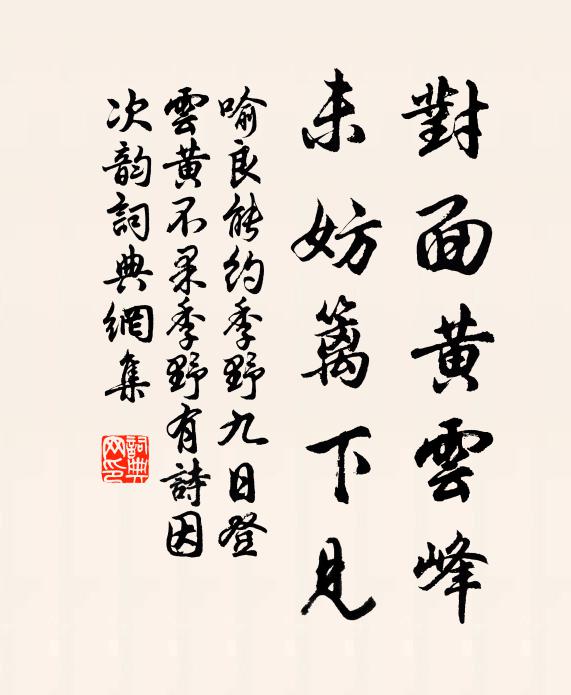 對面黄雲峰
未妨籬下見
喻良能約季野九日登
雲黄不果季野有詩因
次韵詞典網集
詞典網印